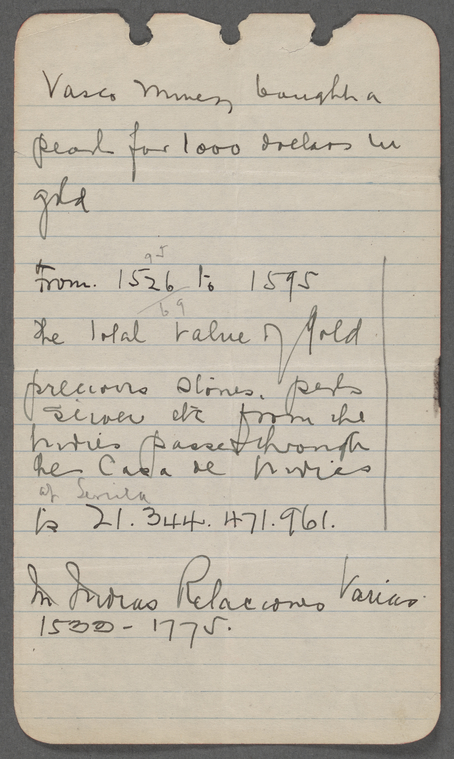 Vasco Munez bought a
pearl for 1000 dollars in
gold
95
From. 1526 to 1595
69
the total value of gold
precious stones. perls
silver etc from the
Indies passed through
the Casa de Indies
at Sevilla
is 21.344.471.961.
In Indias Relaciones Varias.
1533 - 1775.